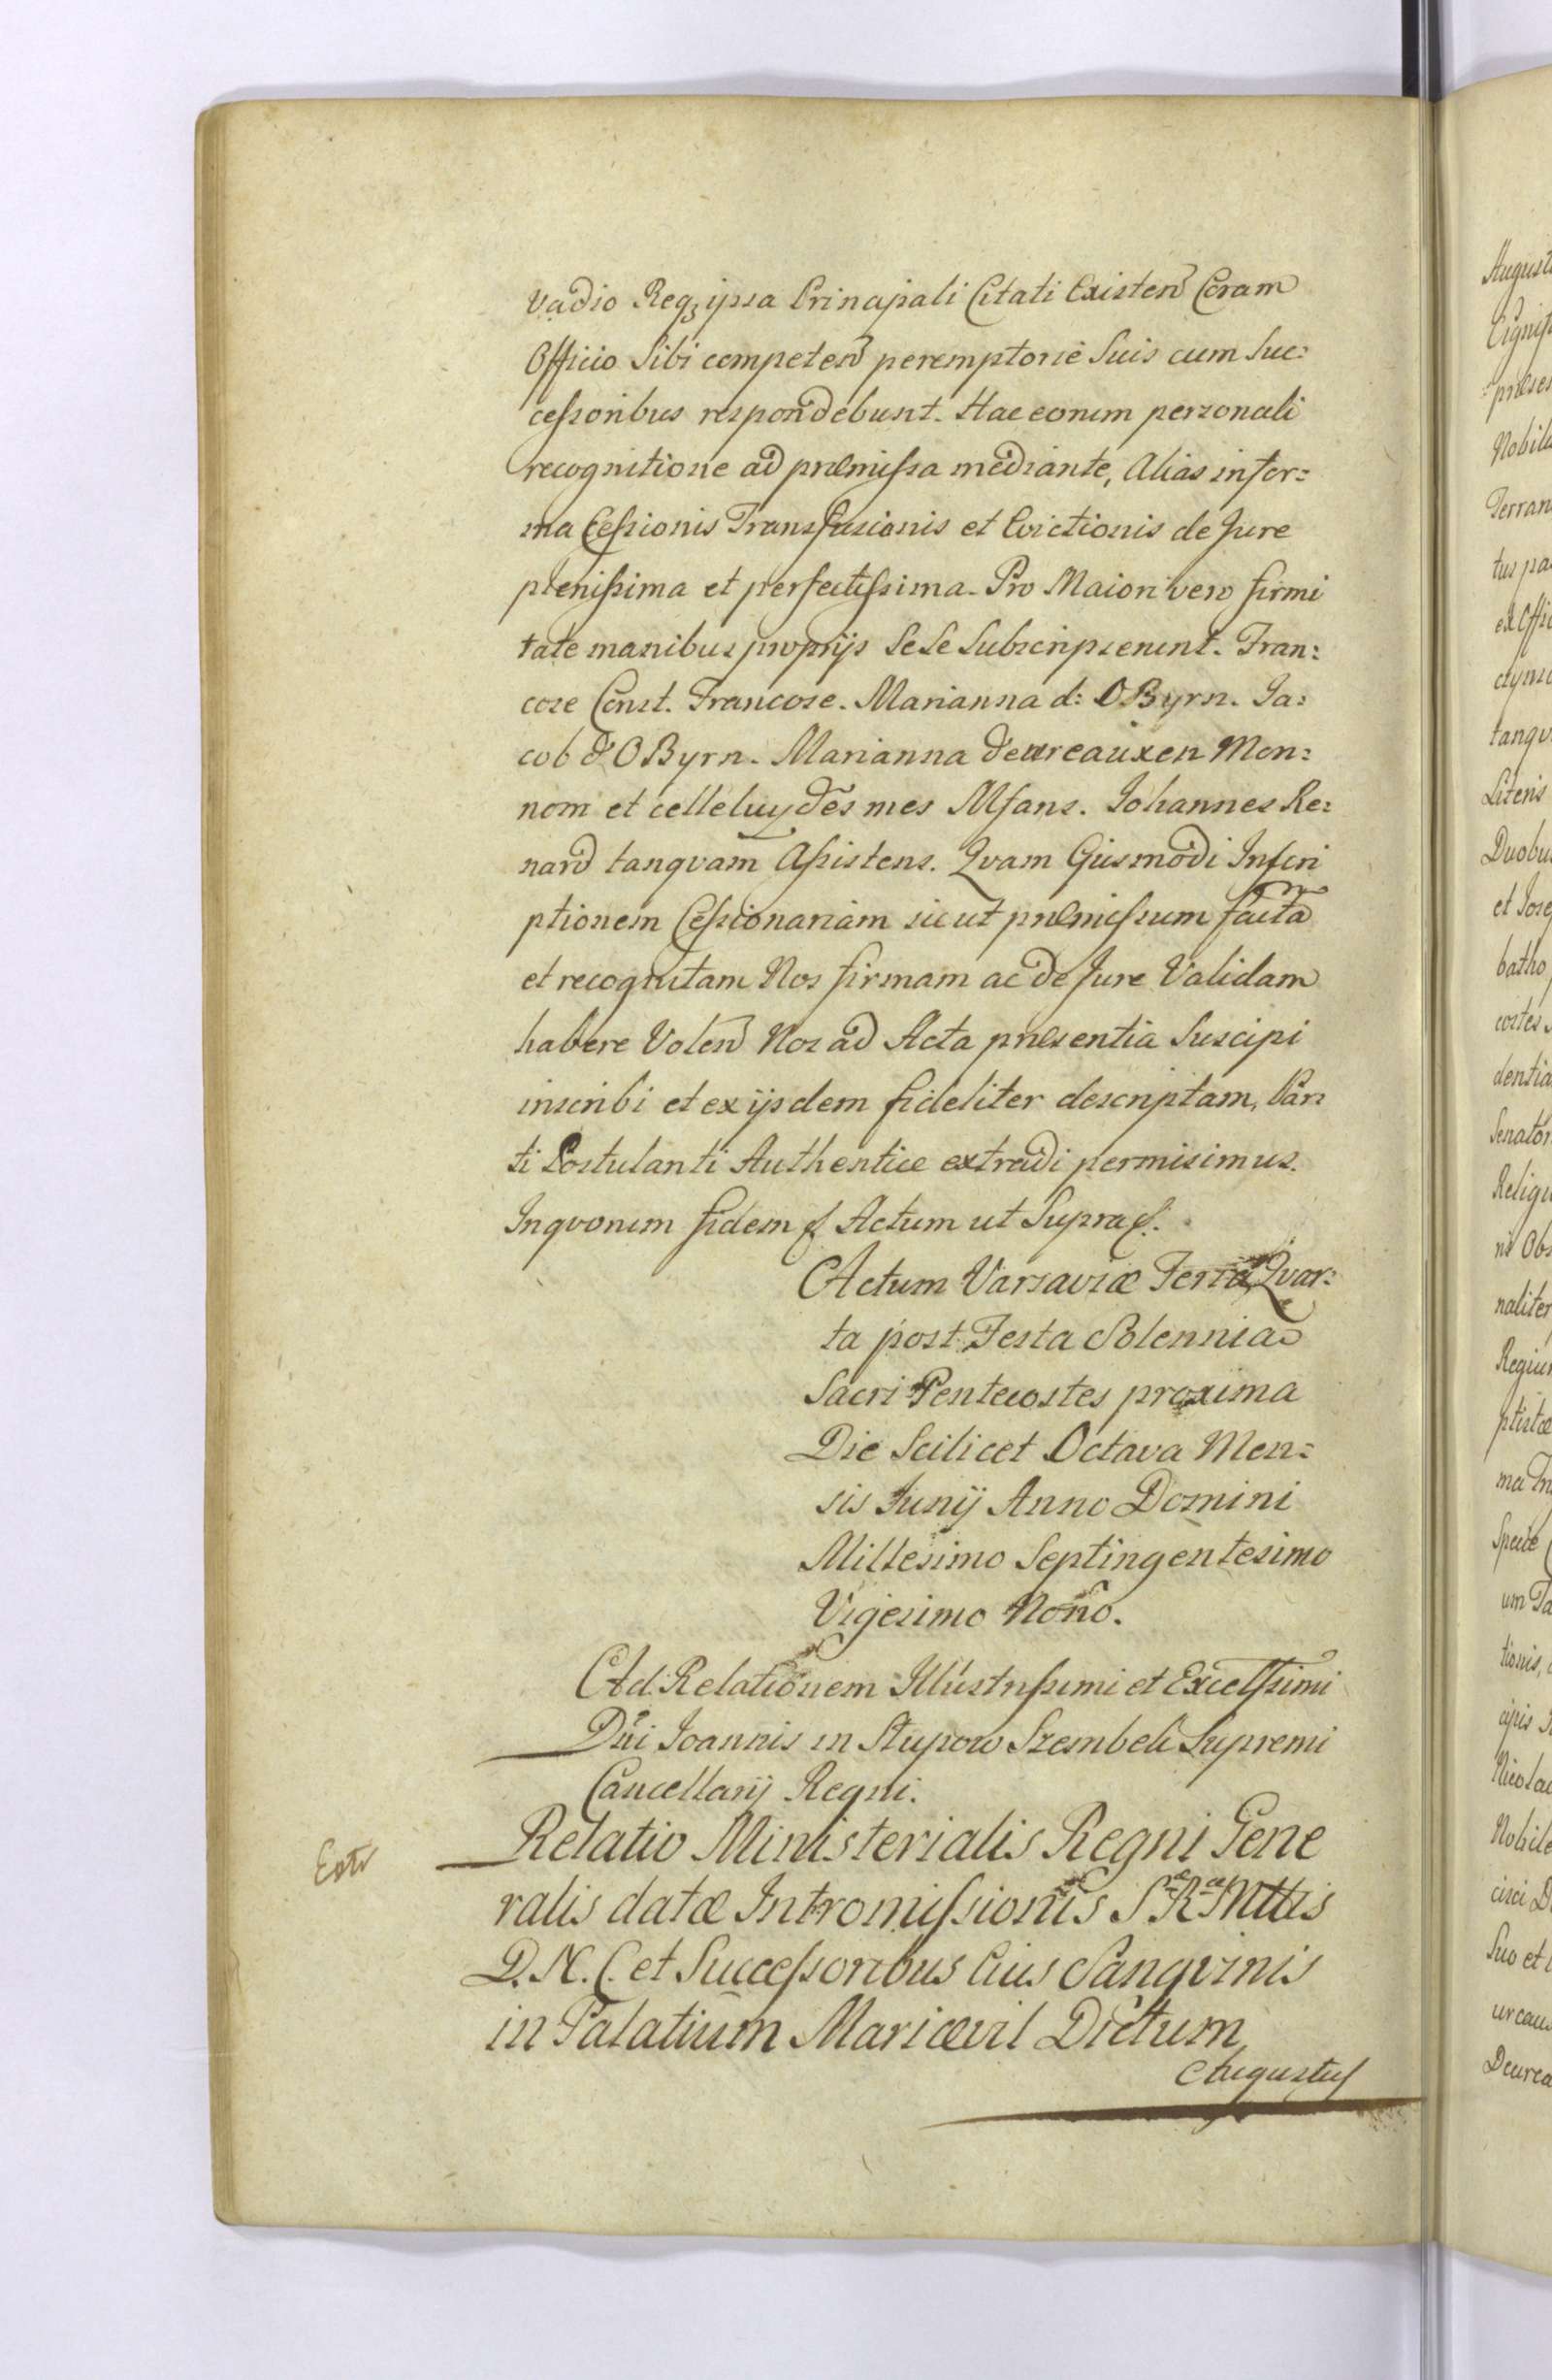 Vadio Reqz ipsa Principali Citati Existen Coram
Officio Sibi competen peremptorie Suis cum Suc:
cessoribus respondebunt. Hac eorum personali
recognitione ad præmissa mediante, Alias in for:
ma Cessionis Transfusionis et Evictionis de Jure
plenissima et perfectissima. Pro Maiori vero firmi
tate manibus proprijs Se Se Subscripserunt. Fran:
cose Const. Francose. Marianna d: O Byrn. Ja:
cob d' O Byrn. Marianna deureaux en Mon:
nom et celleluy des mes Alfans. Johannes Re:
nard tanqvam Assistens. Qvam Eiusmodi Inscri
ptionem Cessionariam sicut præmissum facta
et recognitam Nos firmam ac de Jure Validam
habere Volen Nos ad Acta præsentia Suscipi
inscribi et ex ijsdem fideliter descriptam, Par:
ti Postulanti Authentice extradi permisimus.
In qvorum fidem Actum ut Supra
Actum Varsaviæ Feria Qvar:
ta post Festa Solennia
Sacri Pentecostes proxima
Die Scilicet Octava Men:
sis Junij Anno Domini
Millesimo Septingentesimo
Vigesimo Nono.
Ad Relationem Illustrissimi et Excelssimi
Dni Joannis in Stupow Szembek Supremi
Cancellarij Regni.
Relatio Ministerialis Regni Gene
ralis datæ Intromissionis S R Mttis
D. N. C. et Successoribus Eius Sangvinis
in Palatium Mariævil Dictum
Augustus
Augusti
Signif
præse
Nobila
Terran
tus pa
ex Offi
tanqv
Literis
Duobu
et Jose
batho
costes
dentia
Senator
Religi
ni Obs
naliter
Regiu
ptistæ
ma In
Specie
um Ta
tionis,
cipis
Nicolai
Nobile
cisci D
Suo et
ureau
Deurea